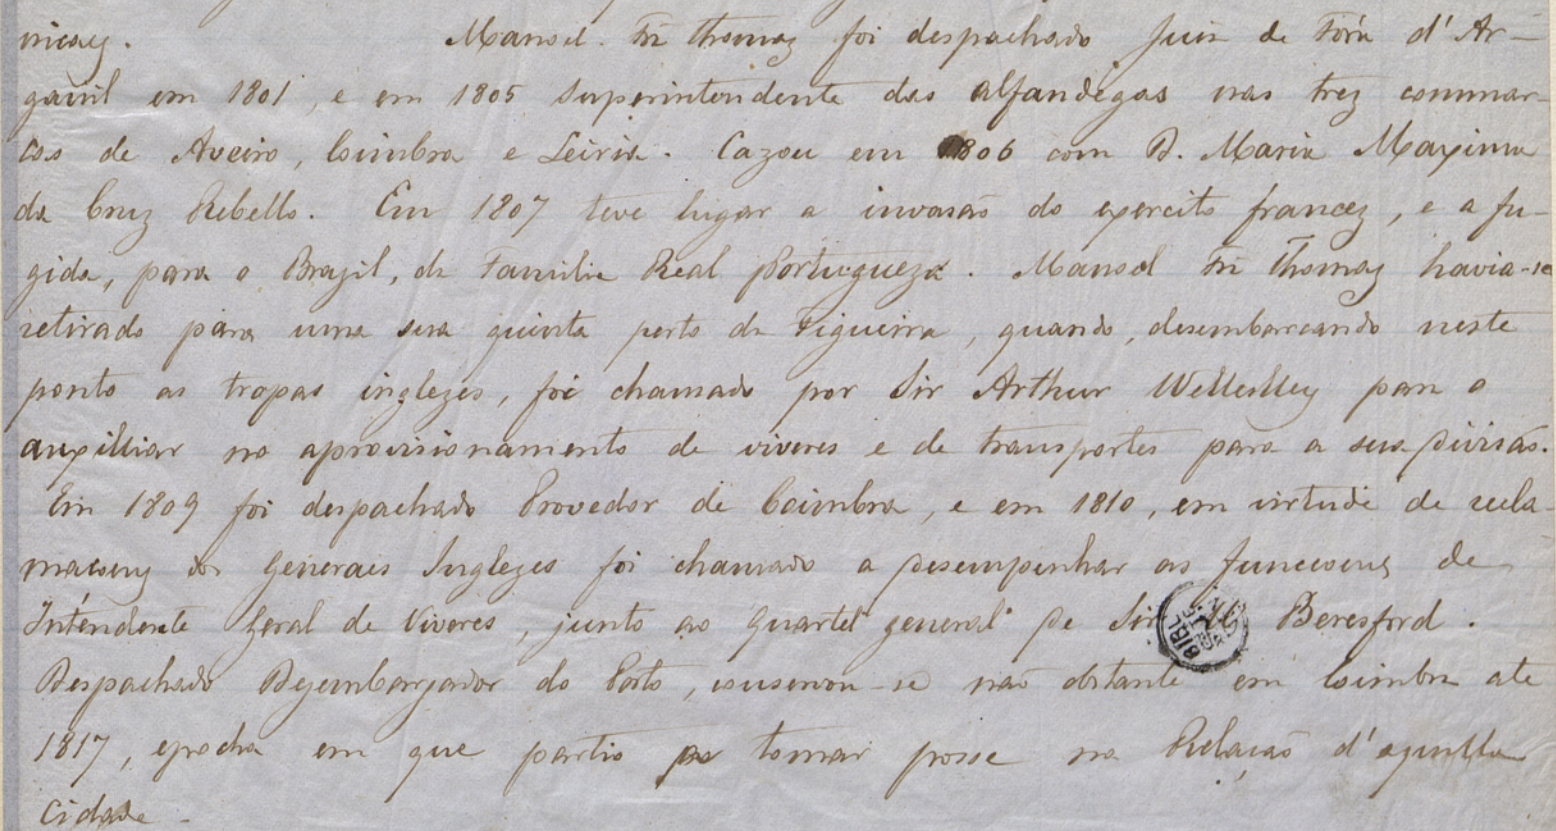 Manoel Fz Thomaz foi despachado Juiz de Fóra d'Ar-
ganil em 1801, e em 1805 Superintendente das alfandegas nas trez commar-
cas de Aveiro, Coimbra e Leiria. Cazou em 1806 com D. Maria Maxima
da Cruz Rebello. Em 1807 teve lugar a invasão do exercito francez, e a fu-
gida, para o Brazil, da Familia Real Portugueza. Manoel Fz Thomaz havia-se
retirado para uma sua quinta perto da Figueira, quando, desembarcando neste
ponto as tropas inglezes, foi chamado por Sir Arthur Wellesley para o
auxilliar no aprovisionamento de viveres e de transportes para a sua divisão.
Em 1809 foi despachado Provedor de Coimbra, e em 1810, em virtude de recla-
maçoens dos Generaes Inglezes foi chamado a desempenhar as funcçoens de
Intendente Geral de Viveres, junto ao Quartel general de Sir Beresford.
Despachado Dezembargador do Porto, conservou-se não obstante em Coimbra ate
1817, epocha em que partio pa tomar posse na Relação d'aquella
Cidade.